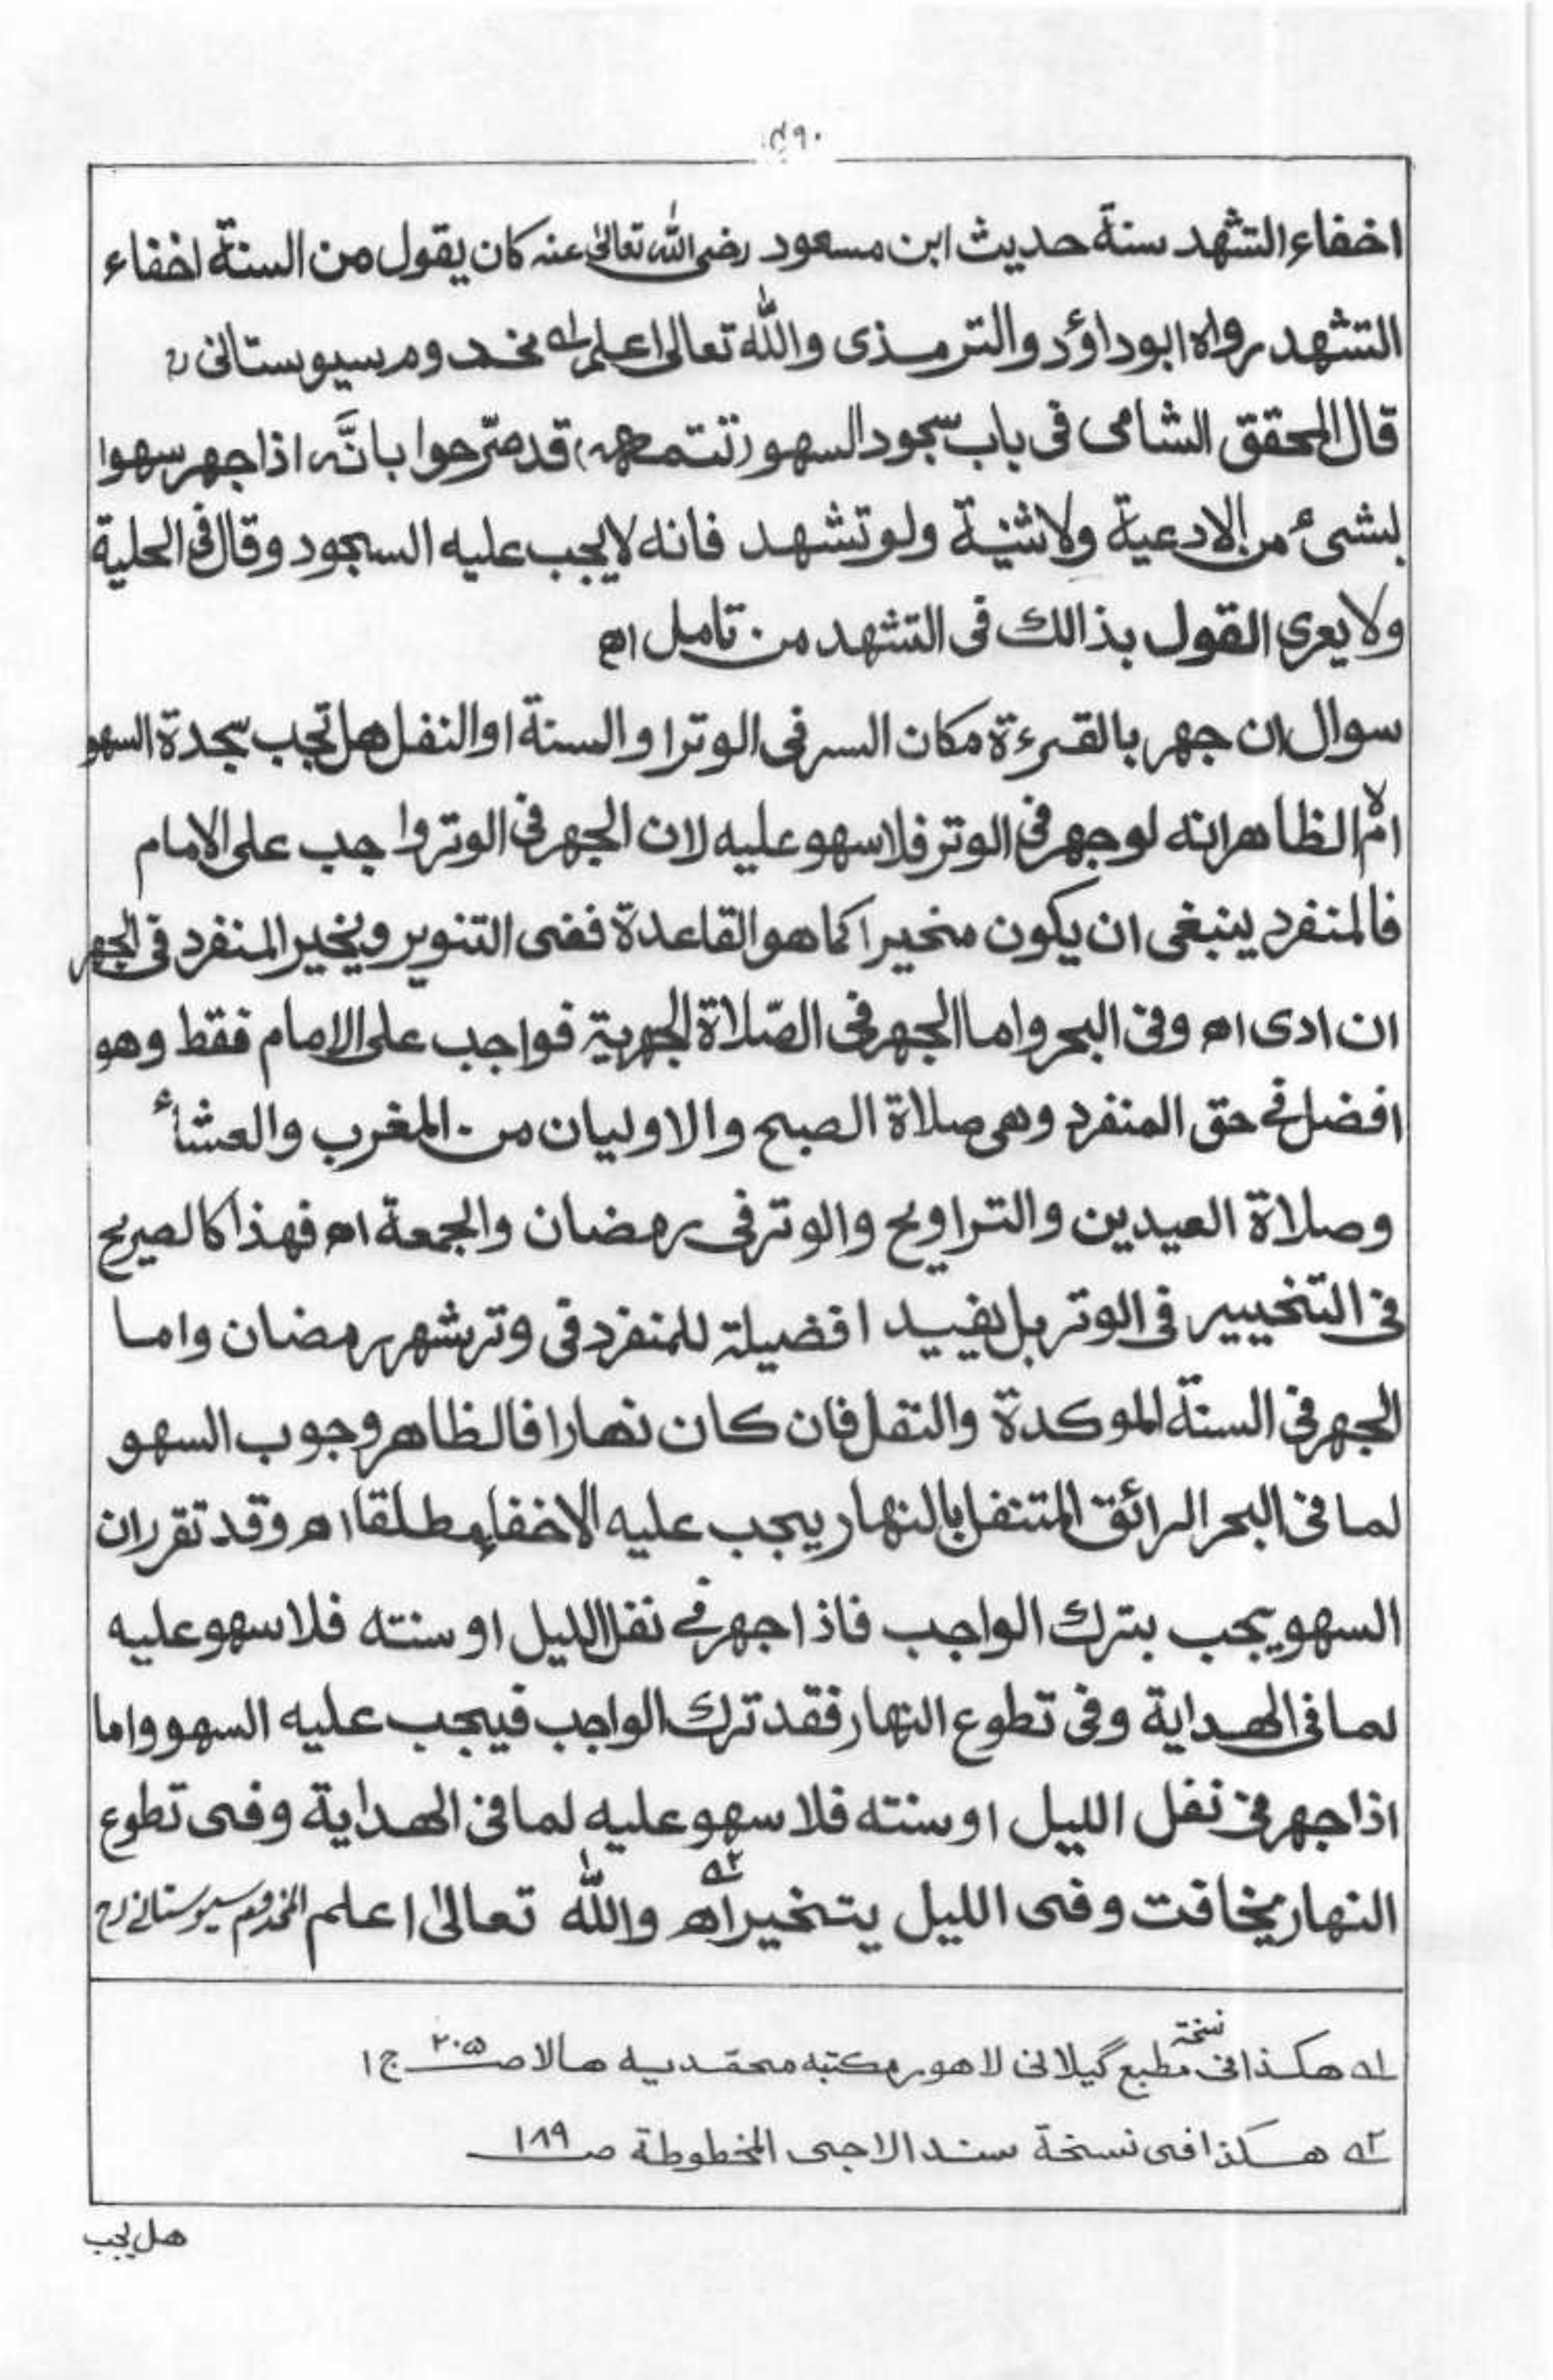 ۵۹۰
اخفاء التشهد سنة حديث ابن مسعود رضى الله تعالىٰ عنه كان يقول من السنة اخفاء
التشهد رواه ابوداؤد والترمذى والله تعالىٰ اعلم ١ه مخدوم سيوستانى رح
قال المحقق الشامى فى باب سجود السهو (تتمه) قد صرّحوا بانَّه اذا جهر سهوا
بشىء من الادعية ولاثنية ولو تشهد فانه لايجب عليه السجود وقال فى الحلية
ولا يعرى القول بذالك فى التشهد من تامل اه
سوال ان جهر بالقرءة مكان السر فى الوتر او السنة او النفل هل تجب سجدة السهو
ام لا الظاهر انه لو جهر فى الوتر فلا سهو عليه لان الجهر فى الوتر واجب على الامام
فالمنفرد ينبغى ان يكون مخيرا كما هو القاعدة ففى التنوير ويخير المنفرد فى الجهر
ان ادى اه وفى البحر واما الجهر فى الصّلاة الجهرية فواجب على الامام فقط وهو
افضل فى حق المنفرد وهى صلاة الصبح والاوليان من المغرب والعشاء
وصلاة العيدين والتراويح والوتر فى رمضان والجمعة اه فهذا كالصريح
فى التخيير فى الوتر بل يفيد افضيلة للمنفرد فى وتر شهر رمضان واما
الجهر فى السنة الموكدة والنفل فان كان نهارا فالظاهر وجوب السهو
لما فى البحر الرائق المتنفل بالنهار يجب عليه الاخفاء مطلقا اه وقد تقرر ان
السهو يجب بترك الواجب فاذا جهر فى نفل الليل او سنته فلا سهو عليه
لما فى الهداية وفى تطوع النهار فقد ترك الواجب فيجب عليه السهو واما
اذا جهر فى نفل الليل او سنته فلا سهو عليه لما فى الهداية وفى تطوع
النهار يخافت وفى الليل يتخير اه ٢ه والله تعالىٰ اعلم المخدوم سيوستانى رح
١ه هكذا فى نسخة مطبع گيلانى لاهور مكتبه محمديه هالا صـ ٢٠٥ ج ١
٢ه هكذا فى نسخة سند الاجى المخطوطة صـ ١٨٩
هل يجب